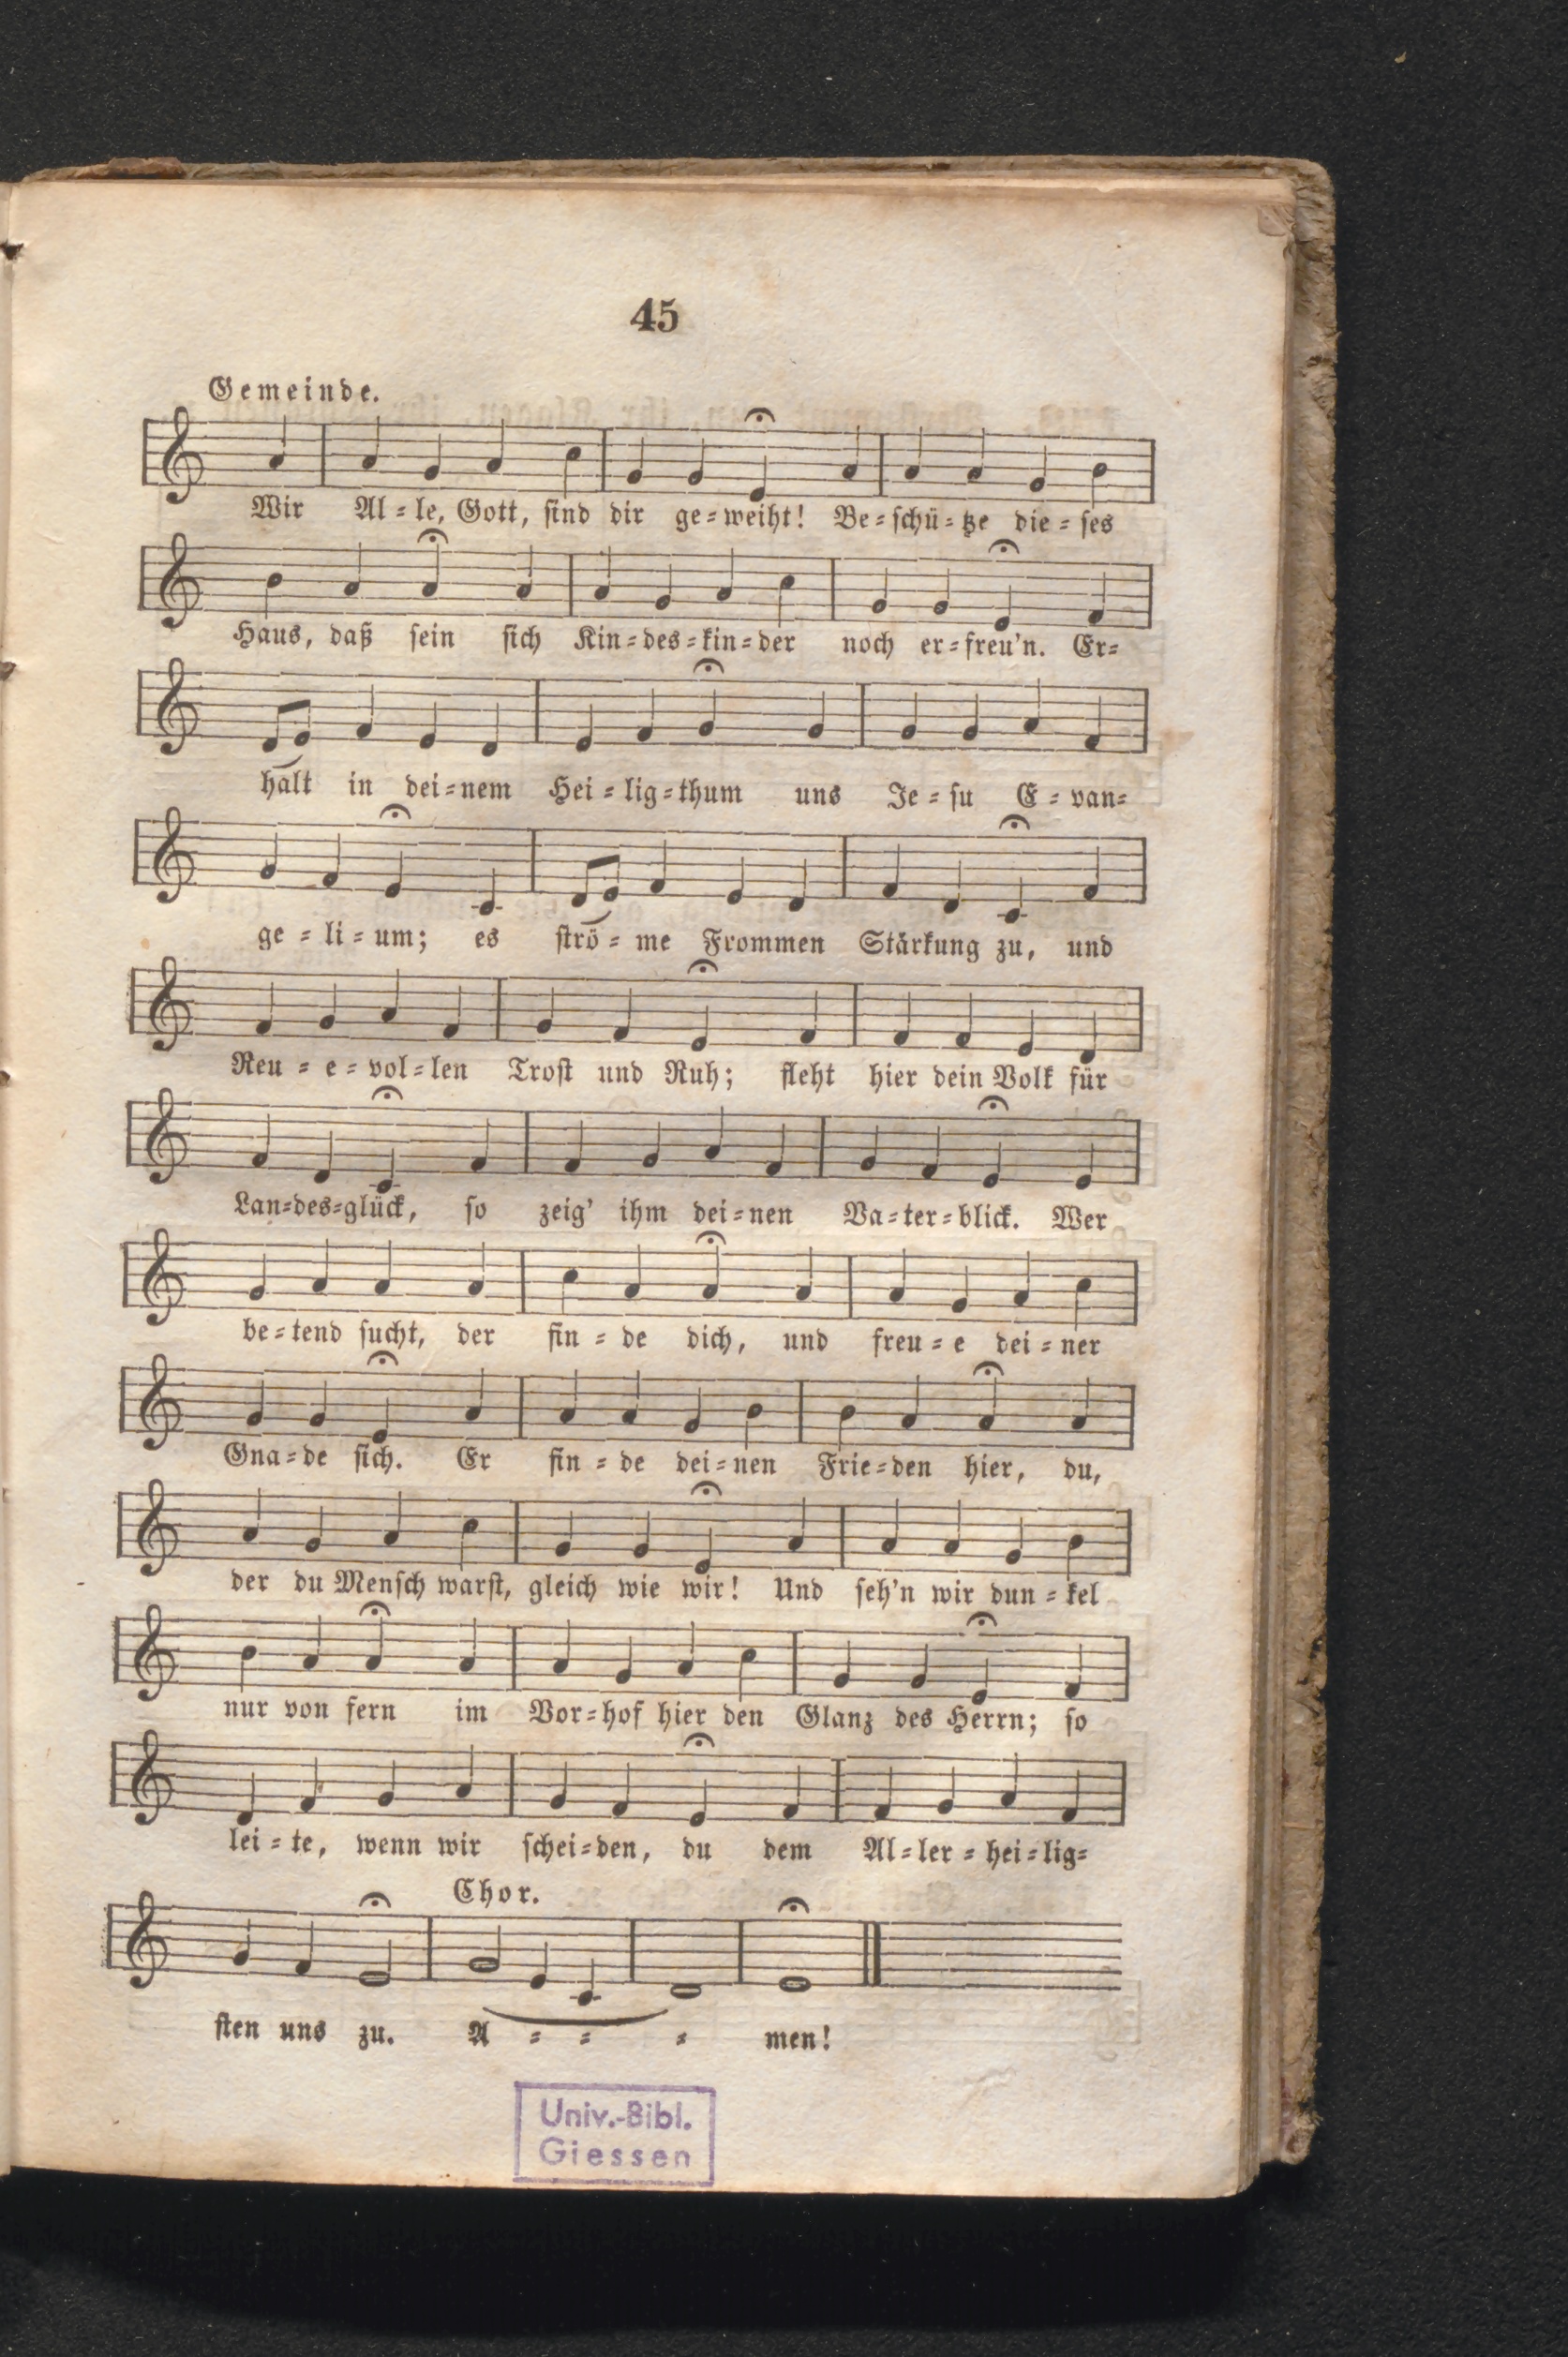 45
Gemeinde.
Wir Al = le, Gott, ſind dir ge = weiht! Be = ſchü = tze die = ſes
Haus, daß ſein ſich Kin = des = kin = der noch er = freu'n. Er=
hält in dei = nem Hei = lig = thum uns Je = ſu E = van=
ge = li = um; es ſtrö = me Frommen Stärkung zu, und
Reu = e = vol = len Troſt und Ruh; fleht hier dein Volk für
Lan = des = glück, ſo zeig' ihm dei = nen Va = ter = blick. Wer
be = tend ſucht, der fin = de dich, und freu = e dei = ner
Gna = de ſich. Er fin = de dei = nen Frie = den hier, du,
der du Menſch warſt, gleich wie wir! Und ſeh'n wir dun = kel
nur von fern im Vor = hof hier den Glanz des Herrn; ſo
lei = te, wenn wir ſchei = den, du dem Al = ler = hei = lig=
Chor.
ſten uns zu. A = = = men!
Univ.-Bibl.
Giessen